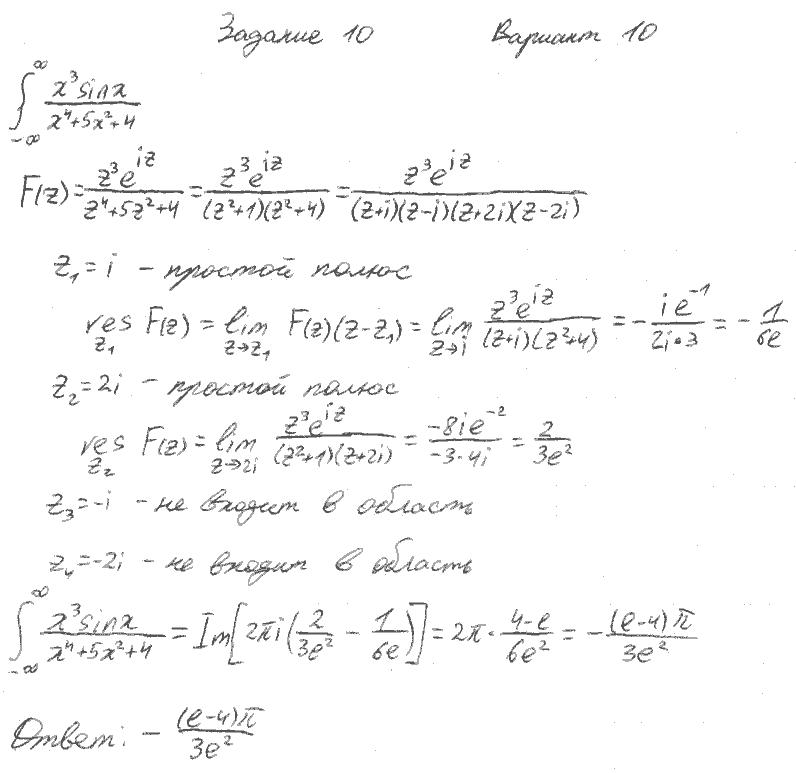 Задание 10 Вариант 10
∫_{-∞}^{∞} x³sinx / (x⁴+5x²+4)
F(z) = z³e^{iz} / (z⁴+5z²+4) = z³e^{iz} / ((z²+1)(z²+4)) = z³e^{iz} / ((z+i)(z-i)(z+2i)(z-2i))
z₁=i – простой полюс
res_{z₁} F(z) = lim_{z→z₁} F(z)(z-z₁) = lim_{z→i} z³e^{iz} / ((z+i)(z²+4)) = - ie^{-1} / (2i·3) = - 1/(6e)
z₂=2i – простой полюс
res_{z₂} F(z) = lim_{z→2i} z³e^{iz} / ((z²+1)(z+2i)) = -8ie^{-2} / (-3·4i) = 2/(3e²)
z₃=-i – не входит в область
z₄=-2i – не входит в область
∫_{-∞}^{∞} x³sinx / (x⁴+5x²+4) = Im[2πi(2/(3e²) - 1/(6e))] = 2π · (4-e)/(6e²) = - (e-4)π / (3e²)
Ответ: - (e-4)π / (3e²)